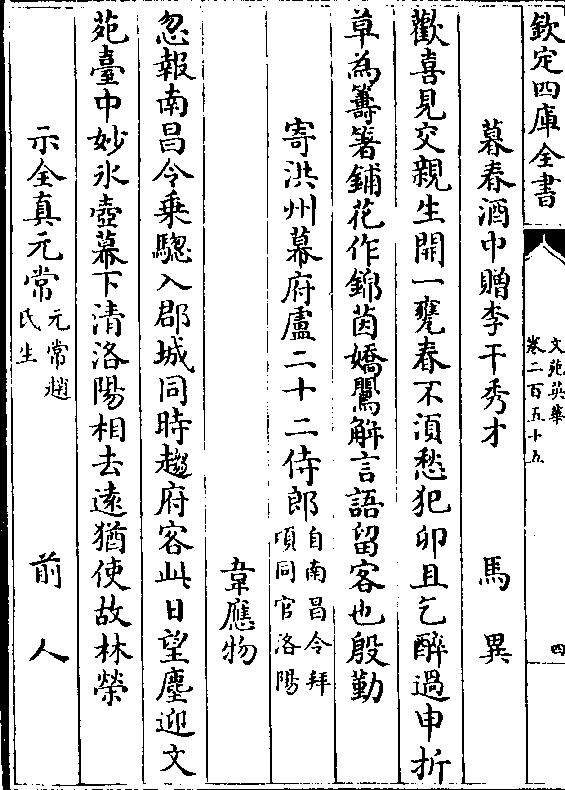 欽定四庫全書
文苑英華
卷二百五十五
四
暮春酒中贈李干秀才
馬異
歡喜見交親生開一甕春不湏愁犯卯且乞醉過申折
草為籌箸鋪花作錦茵嬌鸎解言語留客也殷勤
寄洪州幕府盧二十二侍郎
自南昌令拜
項同官洛陽
韋應物
忽報南昌令乗驄入郡城同時趨府客此日望塵迎文
苑臺中妙氷壺幕下清洛陽相去遠猶使故林榮
示全真元常
元常趙
氏生
前人